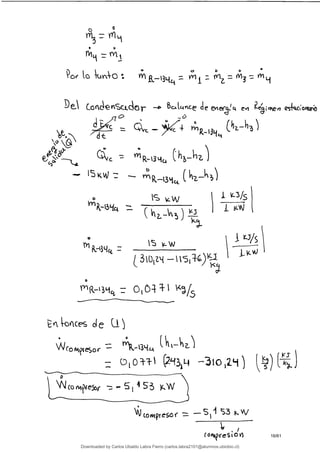 ṁ3 = ṁ4
ṁ4 = ṁ1
Por lo tanto: ṁR-134a = ṁ1 = ṁ2 = ṁ3 = ṁ4
Del condensador → Balance de energía en Régimen estacionario
dEvc/dt = Q̇vc - Ẇvc + ṁR-134a (h2-h3)
energía de salida (Q)
Q̇vc = ṁR-134a (h3-h2)
- 15 KW = - ṁR-134a (h2-h3)
ṁR-134a = 15 KW / (h2-h3) KJ/Kg | 1 KJ/s / 1 KW |
ṁR-134a = 15 KW / (310,24 - 115,76) KJ/Kg | 1 KJ/s / 1 KW |
ṁR-134a = 0,0771 Kg/s
Entonces de (1)
Ẇcompresor = ṁR-134a (h1-h2)
= (0,0771) (243,4 - 310,24) (Kg/s) (KJ/Kg)
Ẇcompresor = - 5,153 KW
Ẇcompresor = - 5,153 KW
compresión
16/61
Downloaded by Carlos Ubaldo Labra Fierro (carlos.labra2101@alumnos.ubiobio.cl)